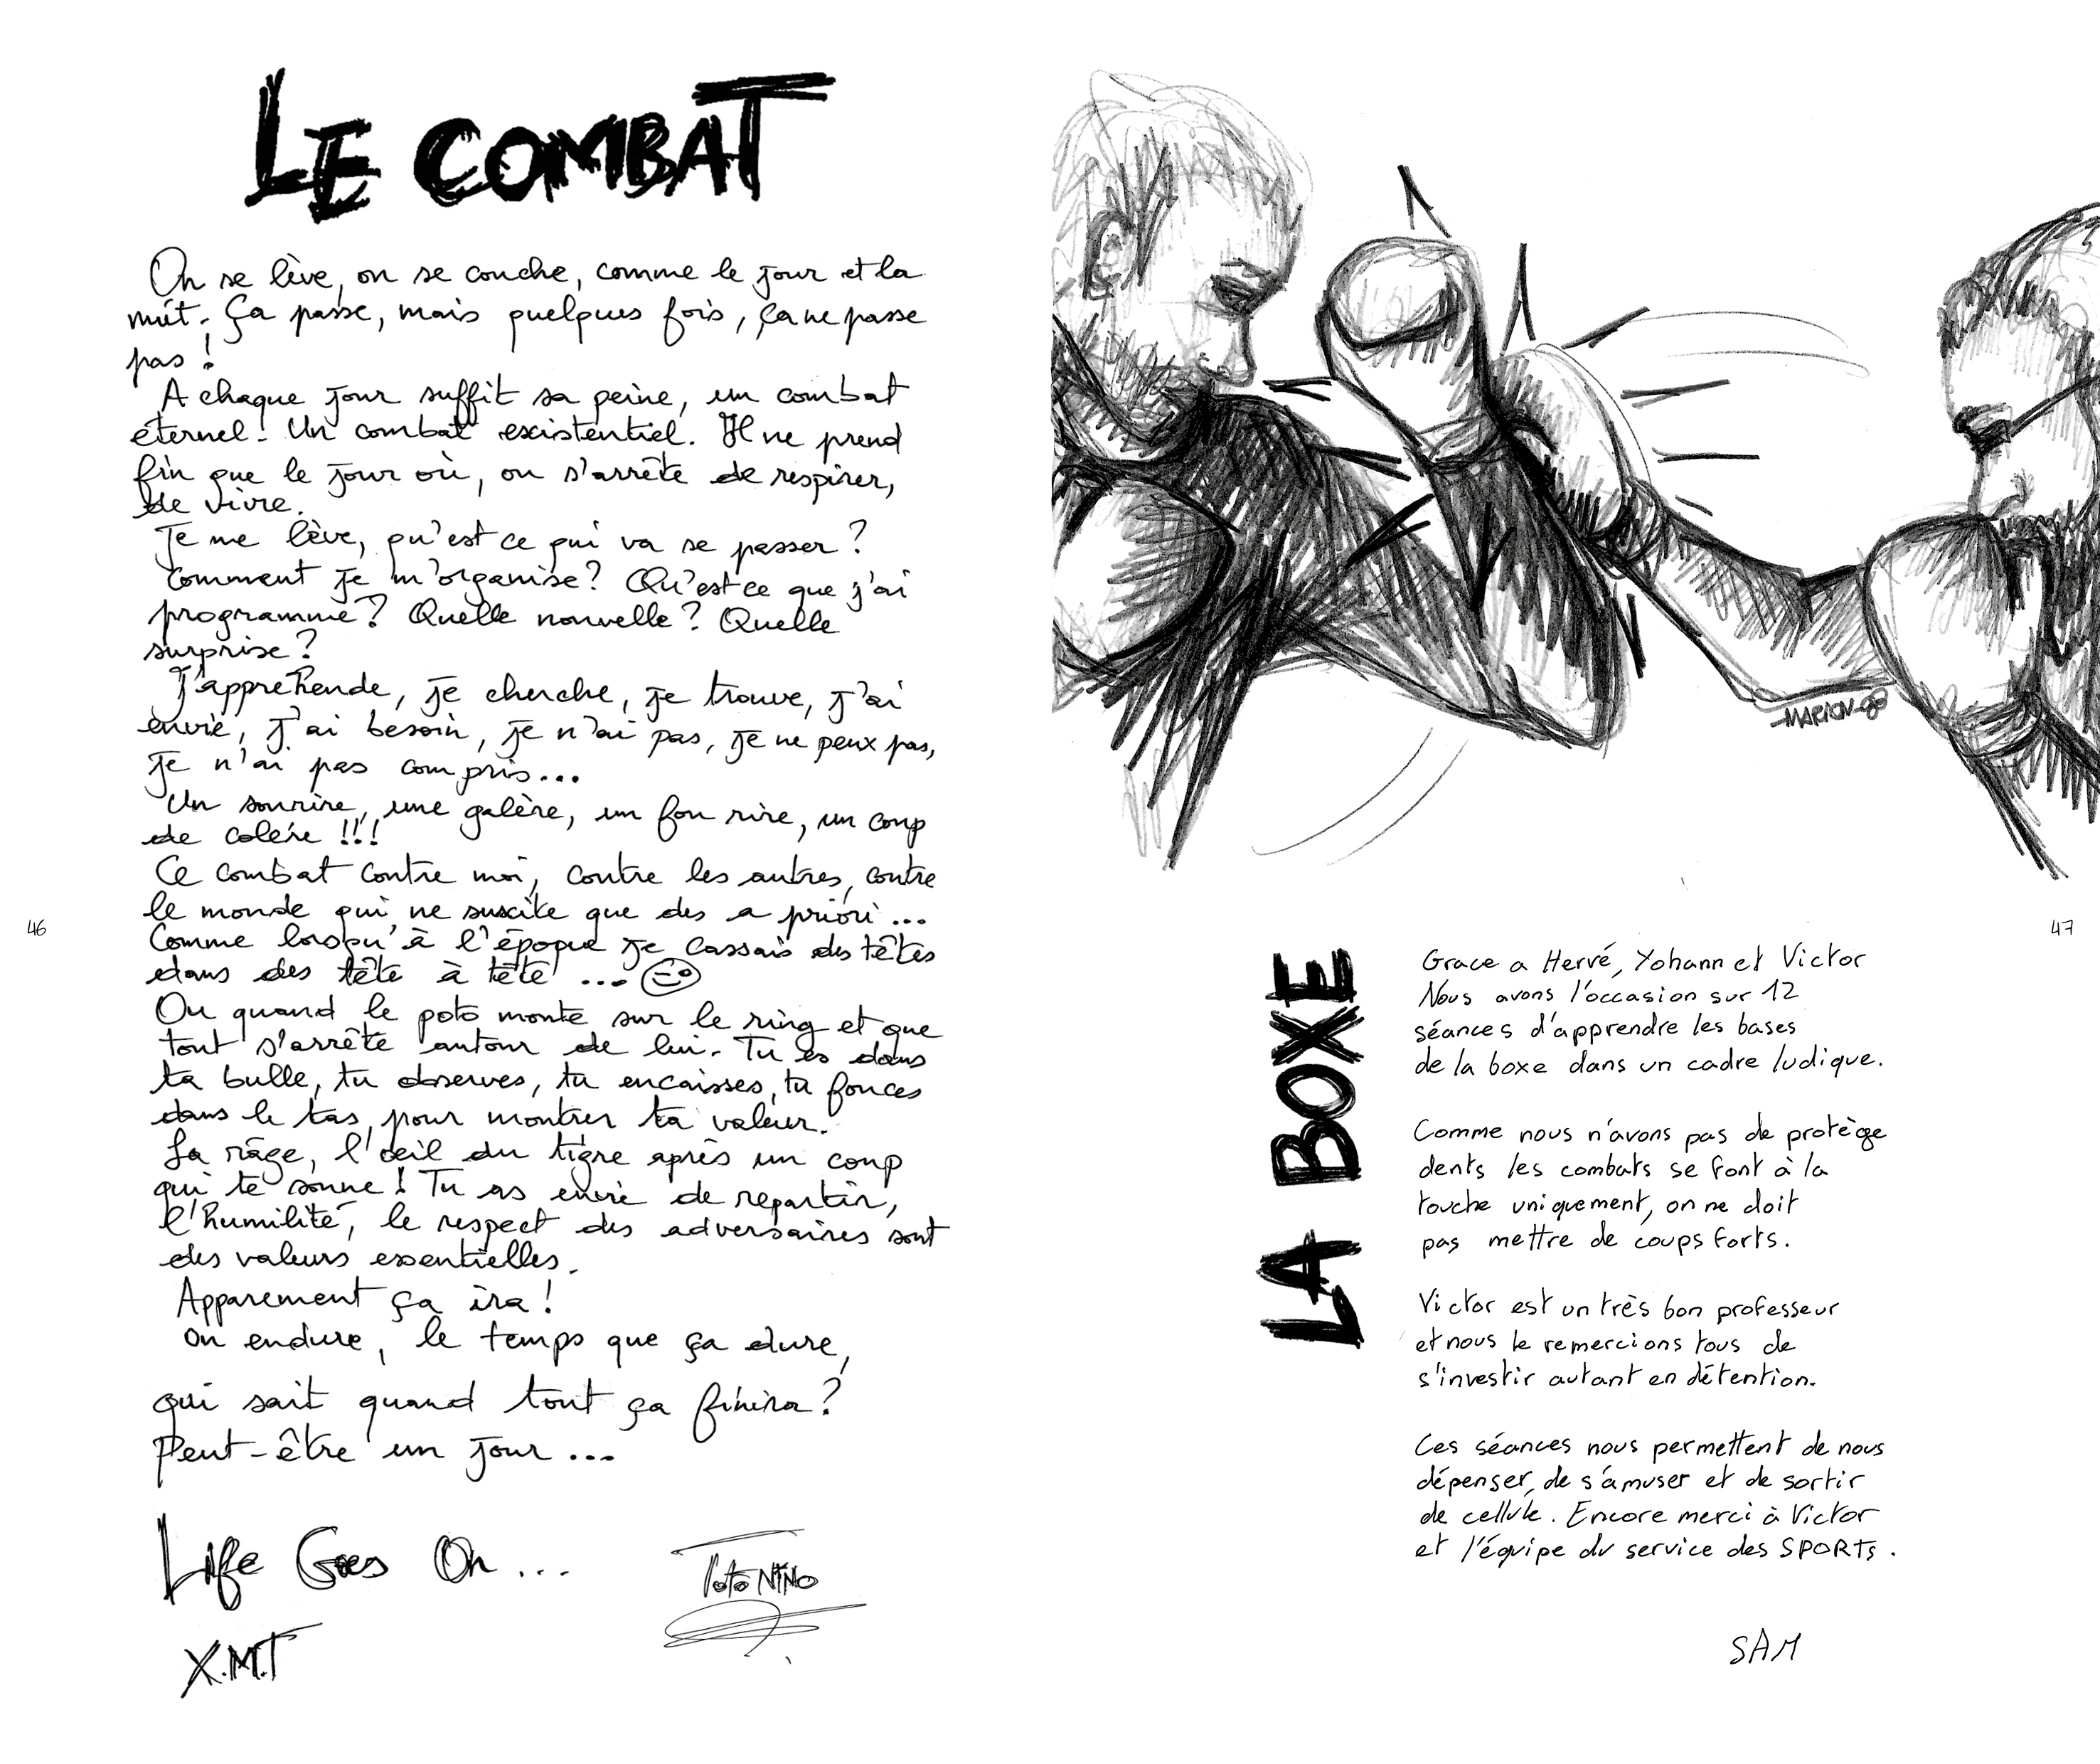 LE COMBAT
On se lève, on se couche, comme le jour et la
nuit. Ça passe, mais quelques fois, ça ne passe
pas !
A chaque jour suffit sa peine, un combat
éternel. Un combat existentiel. Il ne prend
fin que le jour où, on s'arrête de respirer,
de vivre.
Je me lève, qu'est ce qui va se passer ?
Comment je m'organise ? Qu'est ce que j'ai
programmé ? Quelle nouvelle ? Quelle
surprise ?
J'appréhende, je cherche, je trouve, j'ai
envie, j'ai besoin, je n'ai pas, je ne peux pas,
je n'ai pas compris...
Un sourire, une galère, un fou rire, un coup
de colère !!!
Ce combat contre moi, contre les autres, contre
le monde qui ne suscite que des a priori ...
Comme lorsqu'à l'époque je cassais des têtes
dans des tête à tête ...
Ou quand le poto monte sur le ring et que
tout s'arrête autour de lui. Tu es dans
ta bulle, tu observes, tu encaisses, tu fonces
dans le tas, pour montrer ta valeur.
La râge, l'œil du tigre après un coup
qui te sonne ! Tu as envie de repartir,
l'humilité, le respect des adversaires sont
des valeurs essentielles.
Apparement ça ira !
On endure, le temps que ça dure,
qui sait quand tout ça finira ?
Peut-être un jour ...
Life Goes On ...
Toto NINO
X.M.T
46
MARION
47
LA BOXE
Grace a Hervé, Yohann et Victor
Nous avons l'occasion sur 12
séances d'apprendre les bases
de la boxe dans un cadre ludique.
Comme nous n'avons pas de protège
dents les combats se font à la
touche uniquement, on ne doit
pas mettre de coups forts.
Victor est un très bon professeur
et nous le remercions tous de
s'investir autant en détention.
Ces séances nous permettent de nous
dépenser, de s'amuser et de sortir
de cellule. Encore merci à Victor
et l'équipe du service des SPORTS.
SAM